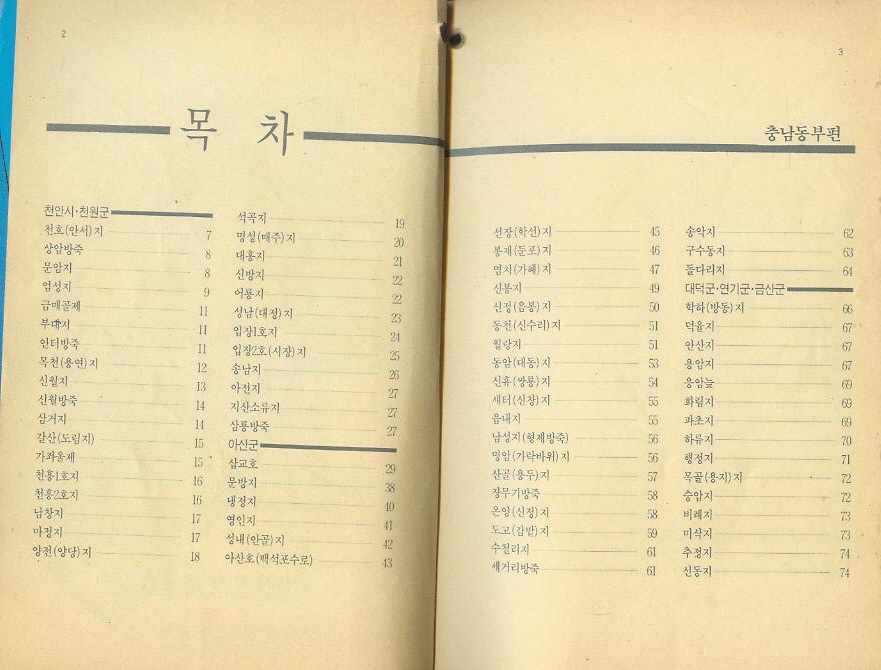 2
목 차
천안시·천원군
천호(안서)지 7
상암방죽 8
문암지 8
업성지 9
금매골제 11
부대지 11
언터방죽 11
목천(용연)지 12
신월지 13
신월방죽 14
삼거지 14
갈산(도림지) 15
가좌울제 15
천흥1호지 16
천흥2호지 16
남창지 17
마정지 17
양전(양당)지 18
석곡지 19
명성(매주)지 20
대흥지 21
신방지 22
어룡지 22
성남(대정)지 23
입장1호지 24
입장2호(시장)지 25
송남지 26
아전지 27
지산소류지 27
삼룡방죽 27
아산군
삽교호 29
문방지 38
냉정지 40
영인지 41
성내(안골)지 42
아산호(백석포수로) 43
3
충남동부편
선장(학선)지 45
봉재(둔포)지 46
염치(가혜)지 47
신봉지 49
신정(음봉)지 50
동천(신수리)지 51
월랑지 51
동암(대동)지 53
신휴(쌍룡)지 54
새터(신창)지 55
읍내지 55
남성지(형제방죽) 56
명암(가락바위)지 56
산골(용두)지 57
장무기방죽 58
온양(신정)지 58
도고(감밭)지 59
수철리지 61
세거리방죽 61
송악지 62
구수동지 63
돌다리지 64
대덕군·연기군·금산군
학하(방동)지 66
덕율지 67
안산지 67
용암지 67
응암늪 69
화림지 69
파초지 69
하류지 70
행정지 71
목골(용지)지 72
승암지 72
비례지 73
미삭지 73
추정지 74
신동지 74